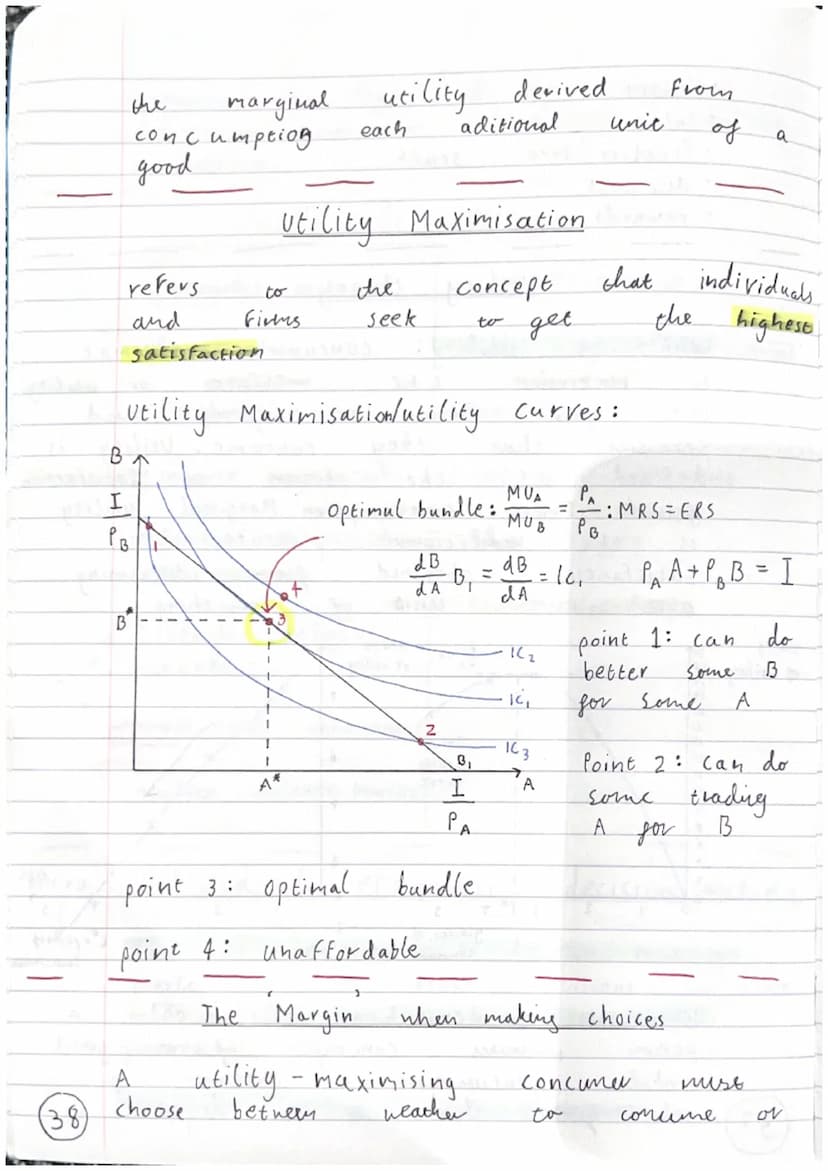 the marginal utility derived from
concumption each aditional unit of a
good
Utility Maximisation
refers to the concept that individuals
and firms seek to get the highest
satisfaction
Utility Maximisation/utility curves:
B
I
P_B
1
Optimul bundle: MU_A/MU_B = P_A/P_B : MRS=ERS
dB/dA B_1 = dB/dA = IC_1 P_A A + P_B B = I
4
B*
3
IC_2
IC_1
2
IC_3
B_1
A*
A
I
P_A
point 1: can do
better some B
for some A
Point 2: can do
some trading
A for B
point 3: optimal bundle
point 4: unaffordable
The 'Margin' when making choices
A utility-maximising concumer must
choose between weather to concume or
38